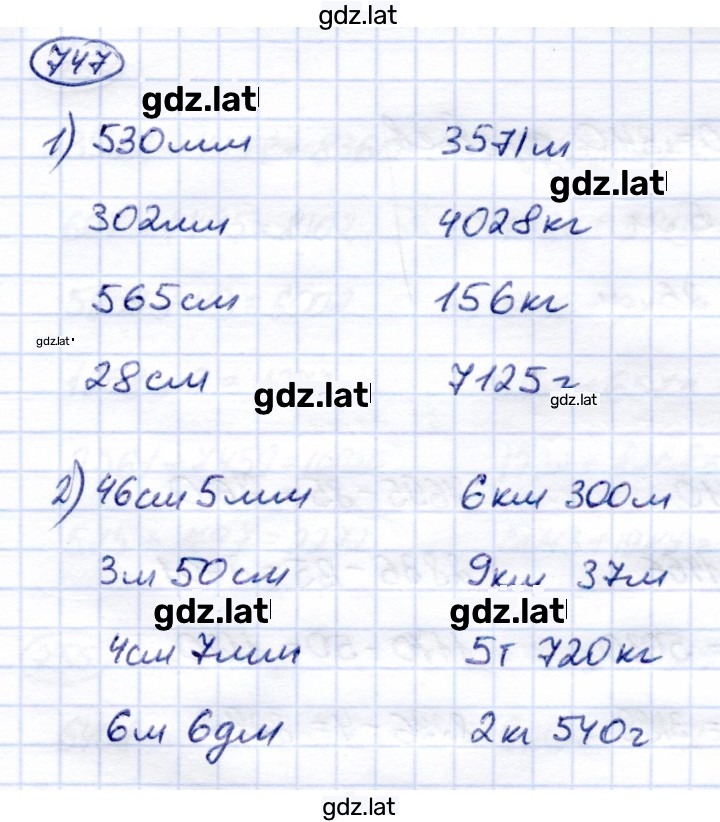 gdz.lat
747
gdz.lat
1) 530мм 3571м
gdz.lat
302мм 4028кг
565см 156кг
gdz.lat
28см 7125г
gdz.lat
gdz.lat
2) 46см 5мм 6км 300м
3м 50см 9км 37м
gdz.lat gdz.lat
4см 7мм 5т 720кг
6м 6дм 2кг 540г
gdz.lat